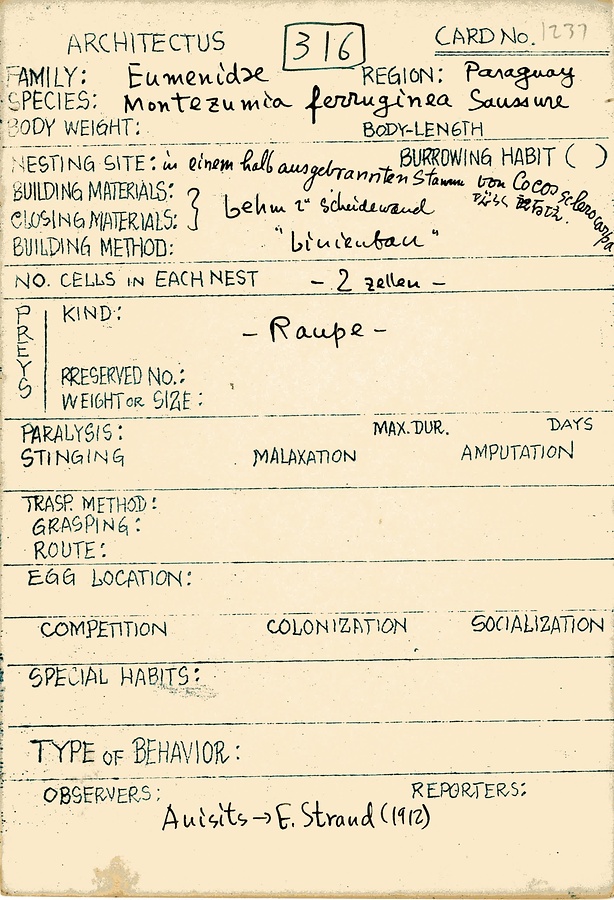 ARCHITECTUS 316 CARD No. 1237
FAMILY: Eumenidae REGION: Paraguay
SPECIES: Montezumia ferruginea Saussure
BODY WEIGHT: BODY-LENGTH
NESTING SITE: in einem halb ausgebrannten Stamm von Cocos sclerocarpa BURROWING HABIT ( )
BUILDING MATERIALS:
CLOSING MATERIALS: } Lehm z" Scheidewand
BUILDING METHOD: "Linienbau"
NO. CELLS IN EACH NEST - 2 zellen -
PREYS
KIND:
- Raupe -
PRESERVED NO.:
WEIGHT OR SIZE:
PARALYSIS: MAX. DUR. DAYS
STINGING MALAXATION AMPUTATION
TRASP. METHOD:
GRASPING:
ROUTE:
EGG LOCATION:
COMPETITION COLONIZATION SOCIALIZATION
SPECIAL HABITS:
TYPE OF BEHAVIOR:
OBSERVERS: REPORTERS:
Anisits → E. Strand (1912)